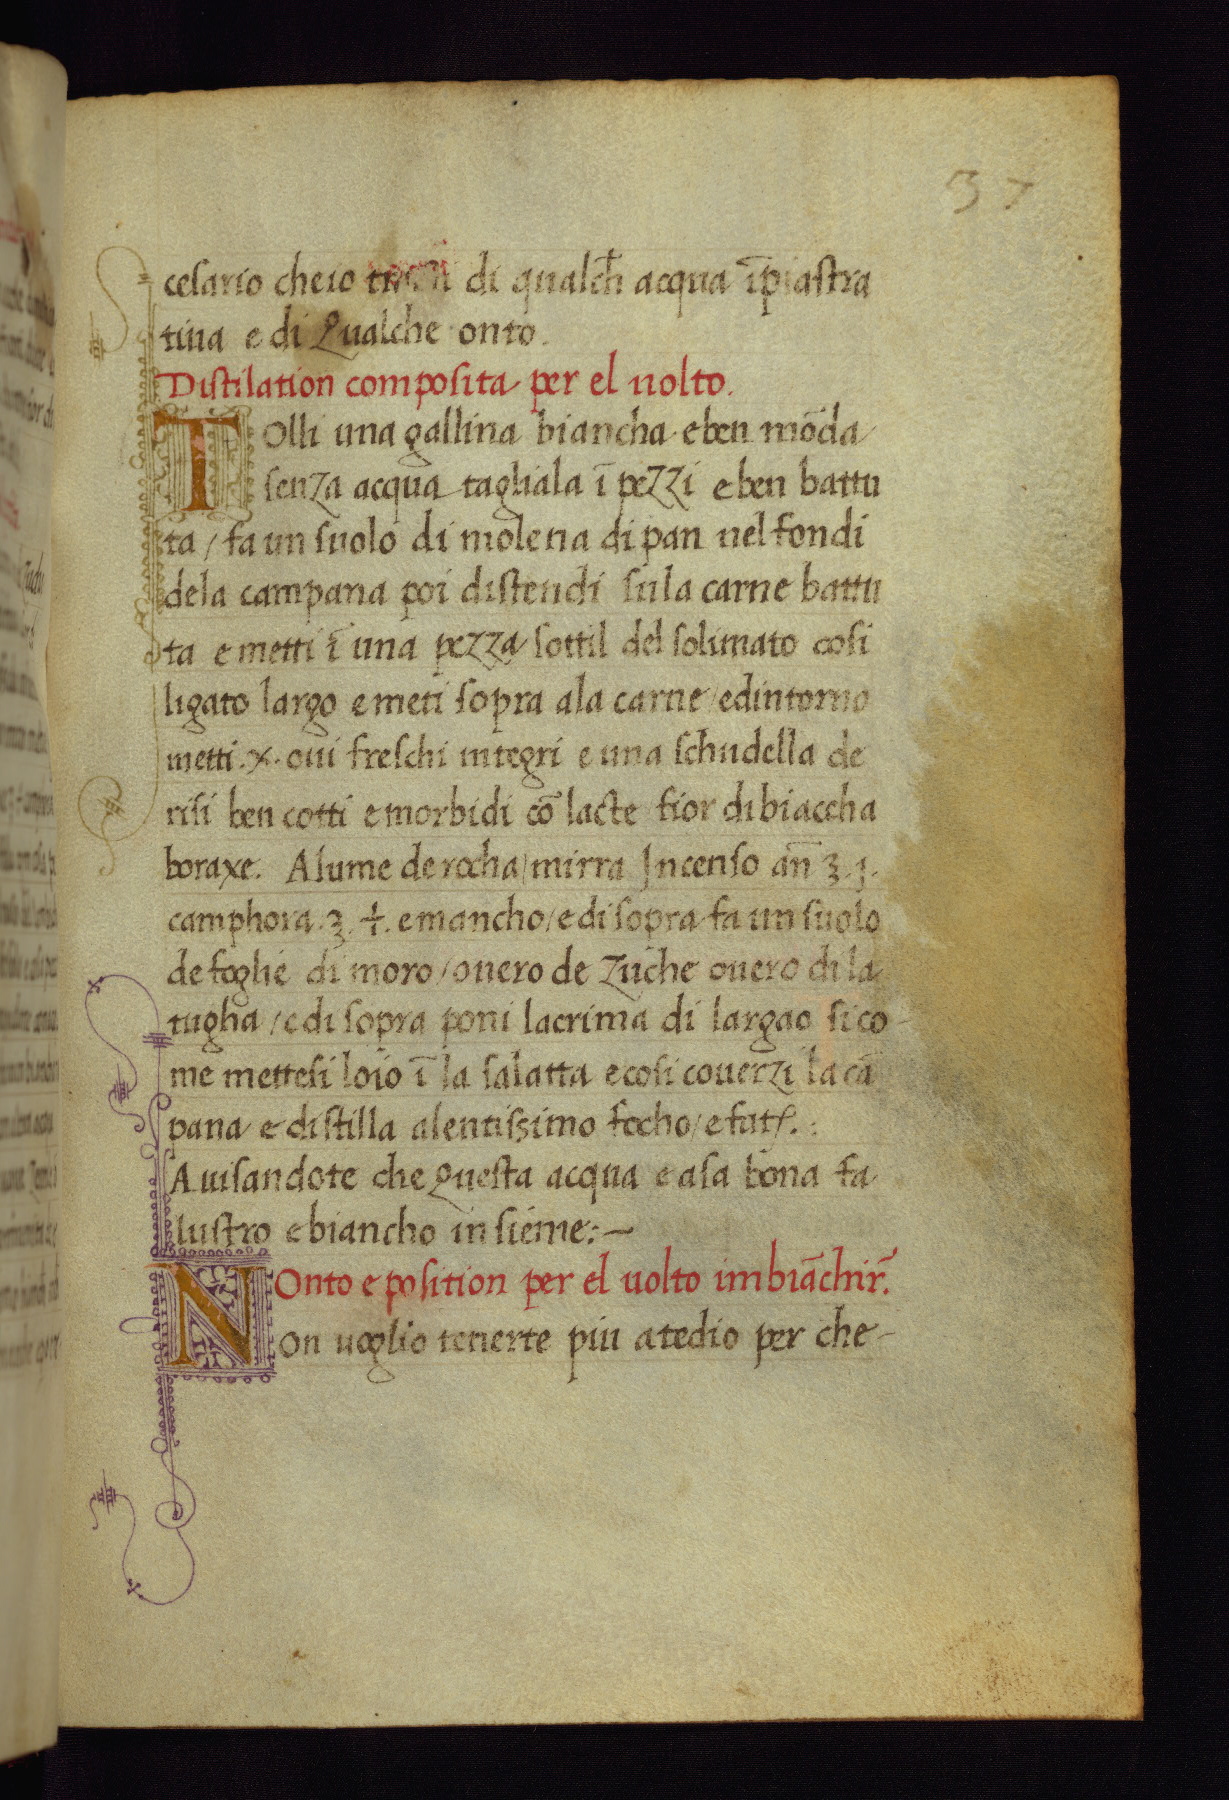 37
cesario cheio di qualch̄ acqua īpiastra
tiua e di Qualche onto.
Distilation composita per el uolto.
Tolli una gallina biancha e ben mōda
senza acqua tagliala ī pezzi e ben battu
ta / fa un suolo di molena di pan nel fondi
dela campana poi distendi su la carne battu
ta e metti ī una pezza sottil del solimato cosi
ligato largo e meti sopra ala carne / edintorno
metti .x. oui freschi integri e una schudella de
risi ben cotti e morbidi cō lacte fior di biaccha
boraxe. Alume de rocha / mirra Incenso an̄ ʒ.j.
camphora .ʒ. e mancho / e di sopra fa un suolo
de foghe di moro / ouero de zuche ouero di la
tugha / e di sopra poni lacrima di largao si co-
me mettesi loio ī la salatta e cosi couerzi la cā
pana e distilla a lentissimo focho / e
Auisandote che questa acqua e asa bona fa
lustro e biancho insieme:—
Onto e position per el uolto imbiāchir̄.
Non uoglio tenerte piu a tedio per che-